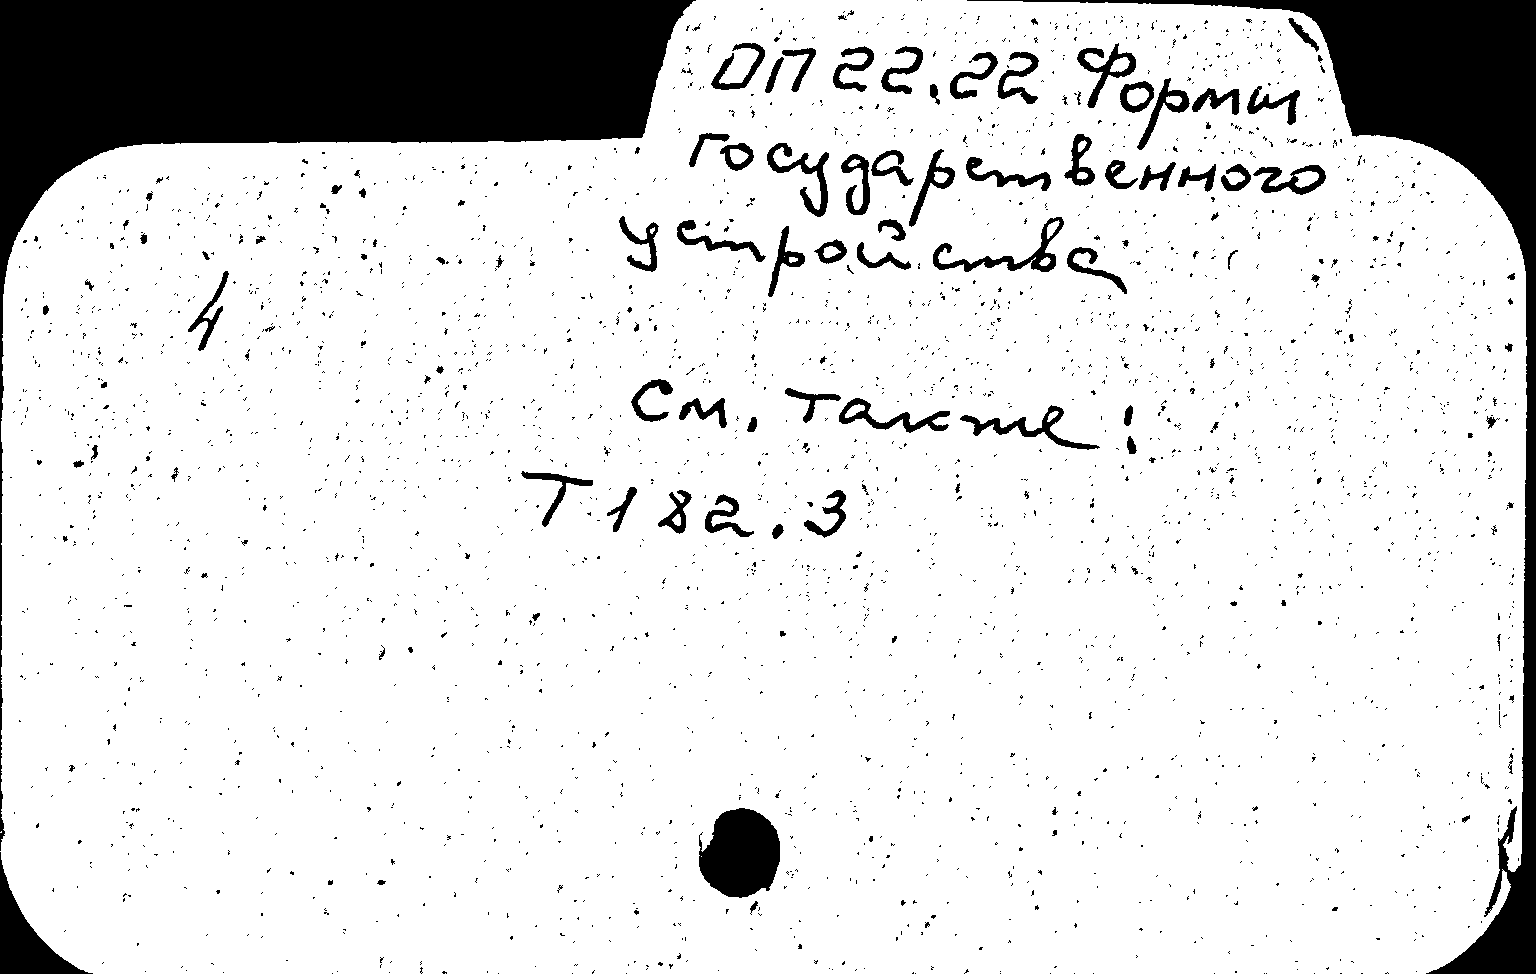 ОП 22.22 Формы
государственного
устройства
4
См. также:
Т 182.3